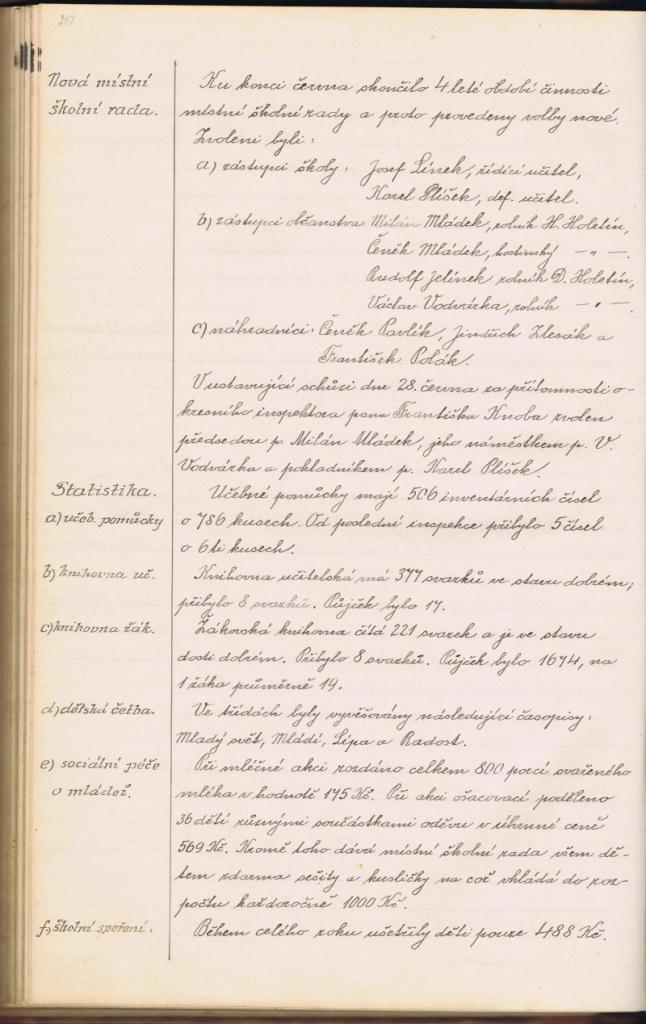 207
Nová místní
školní rada.
Ku konci června skončilo 4 leté období činnosti
místní školní rady a proto provedeny volby nové.
Zvoleni byli:
a) zástupci školy: Josef Línek, řídící učitel,
Karel Plíšek, def. učitel.
b) zástupci občanstva: Milán Mládek, rolník H. Holetín,
Čeněk Mládek, hostinský — „ —.
Rudolf Jelínek rolník D. Holetín,
Václav Vodvárka, rolník — „ —.
c) náhradníci: Čeněk Pavlík, Jindřich Zlesák a
František Polák.
V ustavující schůzi dne 28. června za přítomnosti o-
kresního inspektora pana Františka Knoba zvolen
předsedou p. Milán Mládek, jeho náměstkem p. V.
Vodvárka a pokladníkem p. Karel Plíšek.
Statistika.
a) učeb. pomůcky
Učebné pomůcky mají 506 inventárních čísel
o 786 kusech. Od poslední inspekce přibylo 5 čísel
o 6ti kusech.
b) knihovna uč.
Knihovna učitelská má 377 svazků ve stavu dobrém;
přibylo 8 svazků. Půjček bylo 17.
c) knihovna žák.
Žákovská knihovna čítá 221 svazek a je ve stavu
dosti dobrém. Přibylo 8 svazků. Půjček bylo 1674, na
1 žáka průměrně 19.
d) dětská četba.
Ve třídách byly vyvěšovány následující časopisy:
Mladý svět, Mládí, Lípa a Radost.
e) sociální péče
o mládež.
Při mléčné akci rozdáno celkem 800 porcí svařeného
mléka v hodnotě 175 Kč. Při akci ošacovací poděleno
36 dětí různými součástkami oděvu v úhrnné ceně
569 Kč. Kromě toho dává místní školní rada všem dě-
tem zdarma sešity a kusličky na což vkládá do roz-
počtu každoročně 1000 Kč.
f) školní spoření.
Během celého roku ušetřily děti pouze 488 Kč.